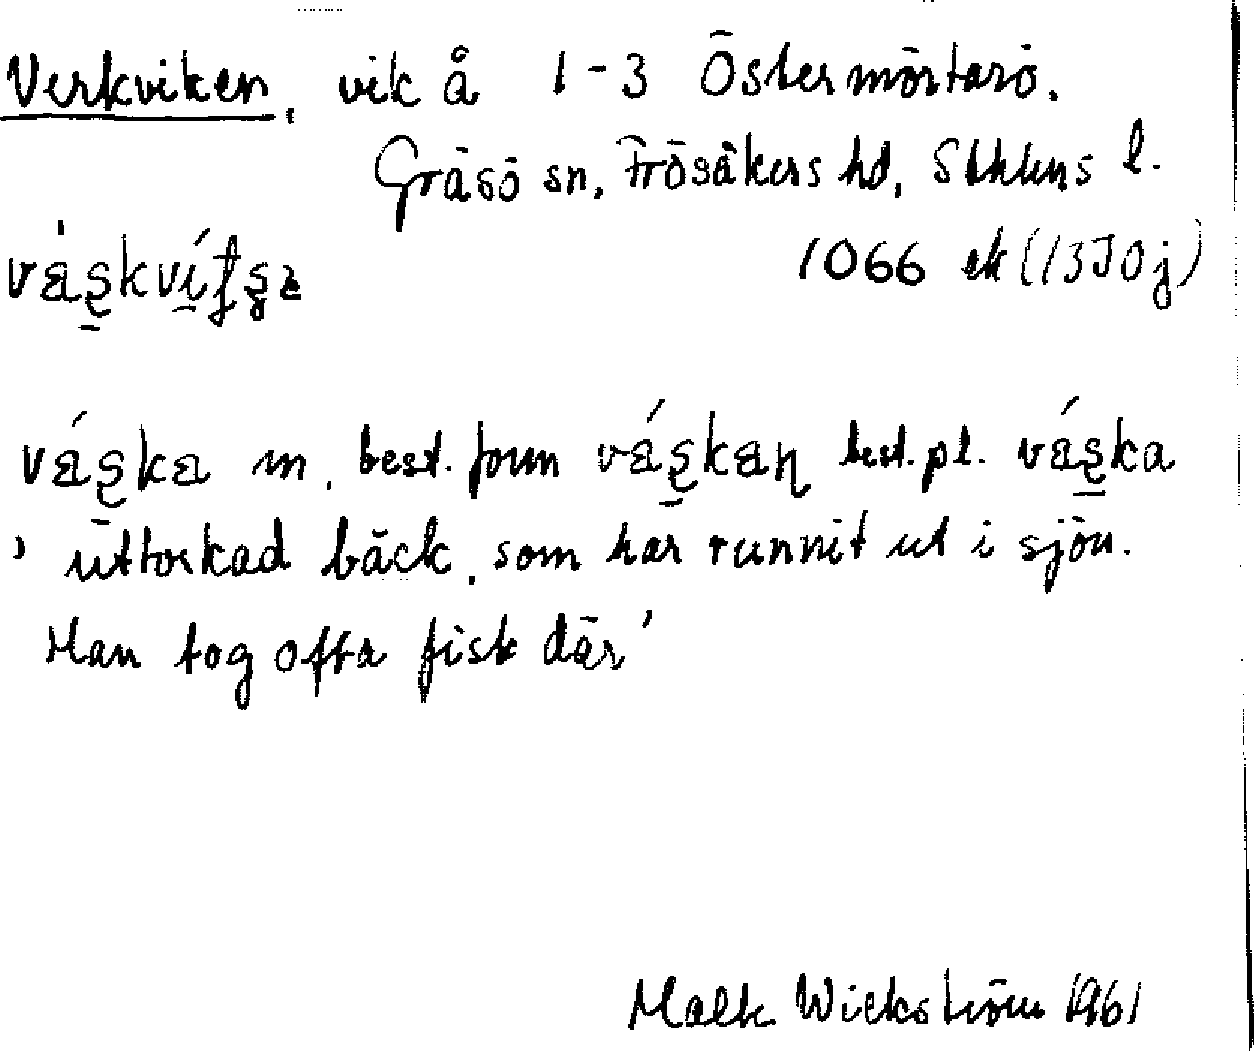 Verkviken, vik å 1-3 Östermörtarö.
Gräsö sn, Frösåkers hd, Sthlms l.
1066 ek (13J0j)
m, best. form best. pl.
' uttorkad bäck, som har runnit ut i sjön.
Man tog ofta fisk där'
Wickström 1961